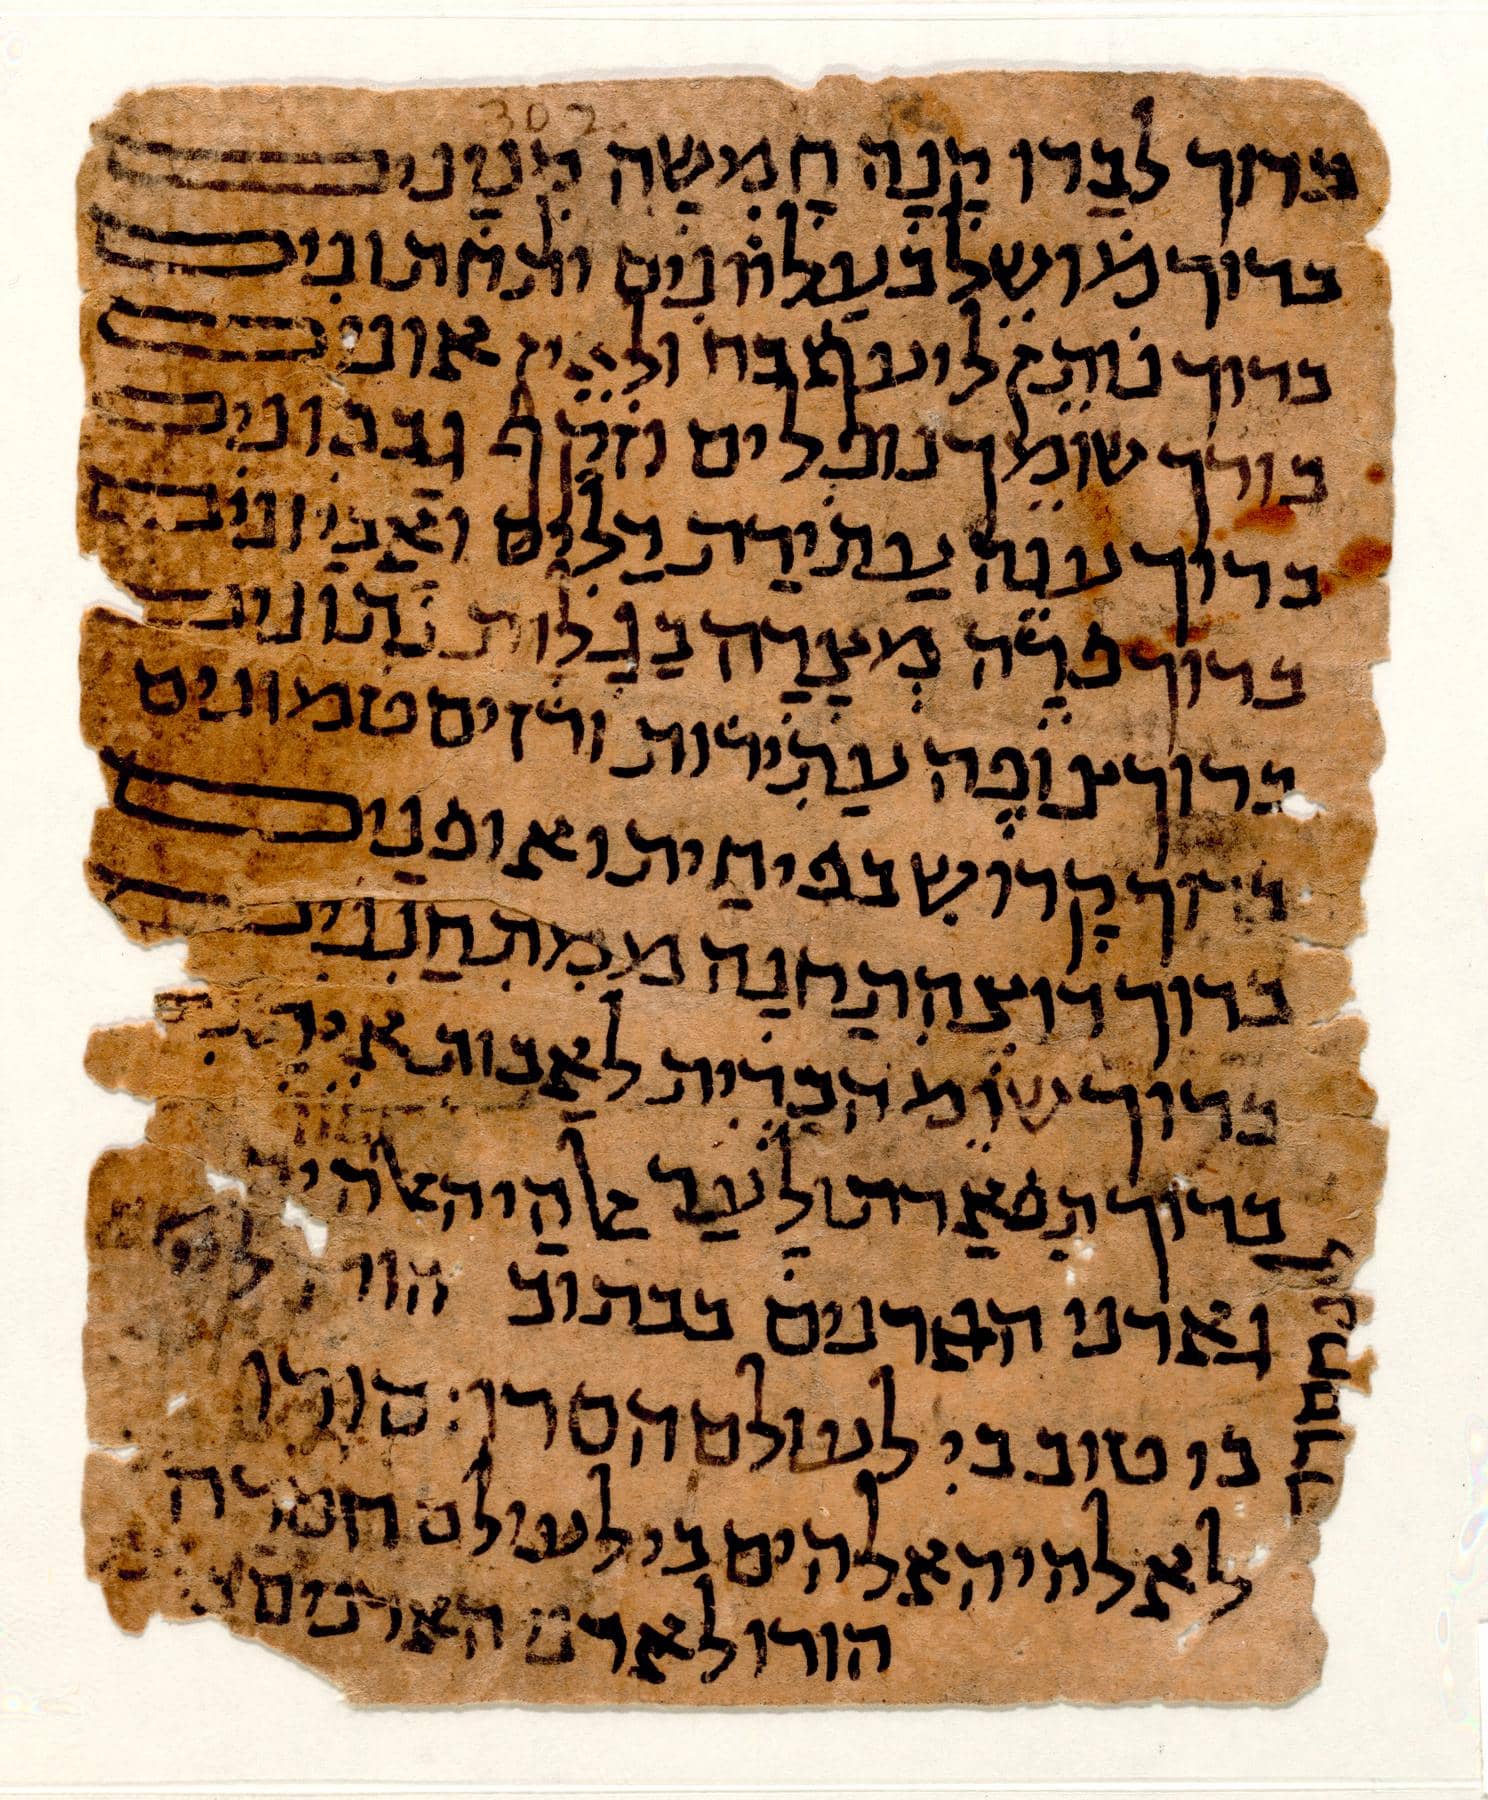 302
ברוך לבַדו קָנָה חֲמִשָה קִנְיָנים
ברוך מושֵל בְעֶלְיונִים ותחתונִים
ברוך נותֵן ליעף כח ולאֵין אונים
ברוך שומֵך נופְלים וזֹקֵף גבנונִים
ברוך ענֶה עֲתִירַת דַלִים ואֶביונִים
ברוך פודֶה בגָלות נתונים
ברוך צופֶה עתִידות ורזים טמונים
ברוך קָדוש בפי חַיות ואופנים
ברוך רוצה תְחִנָה ממִתְחַנְנִים
ברוך שומֵ הבְרִית לאבות
ברוך תִפְאַרתו לָעַד אלהי האלהים
ואדני האדנים ככתוב הודו ליי
כי טוב כי לעולם חסדו: הודו
לאלהי האלהים כי לעולם חסדו
הודו לאדני האדנים